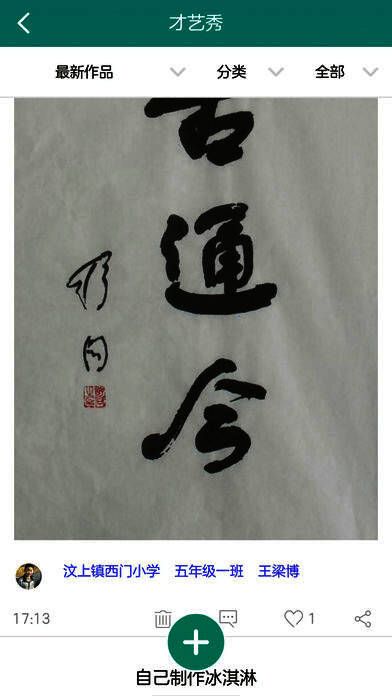 才艺秀
最新作品 分类 全部
古
通
今
汶上镇西门小学 五年级一班 王梁博
17:13 1
自己制作冰淇淋